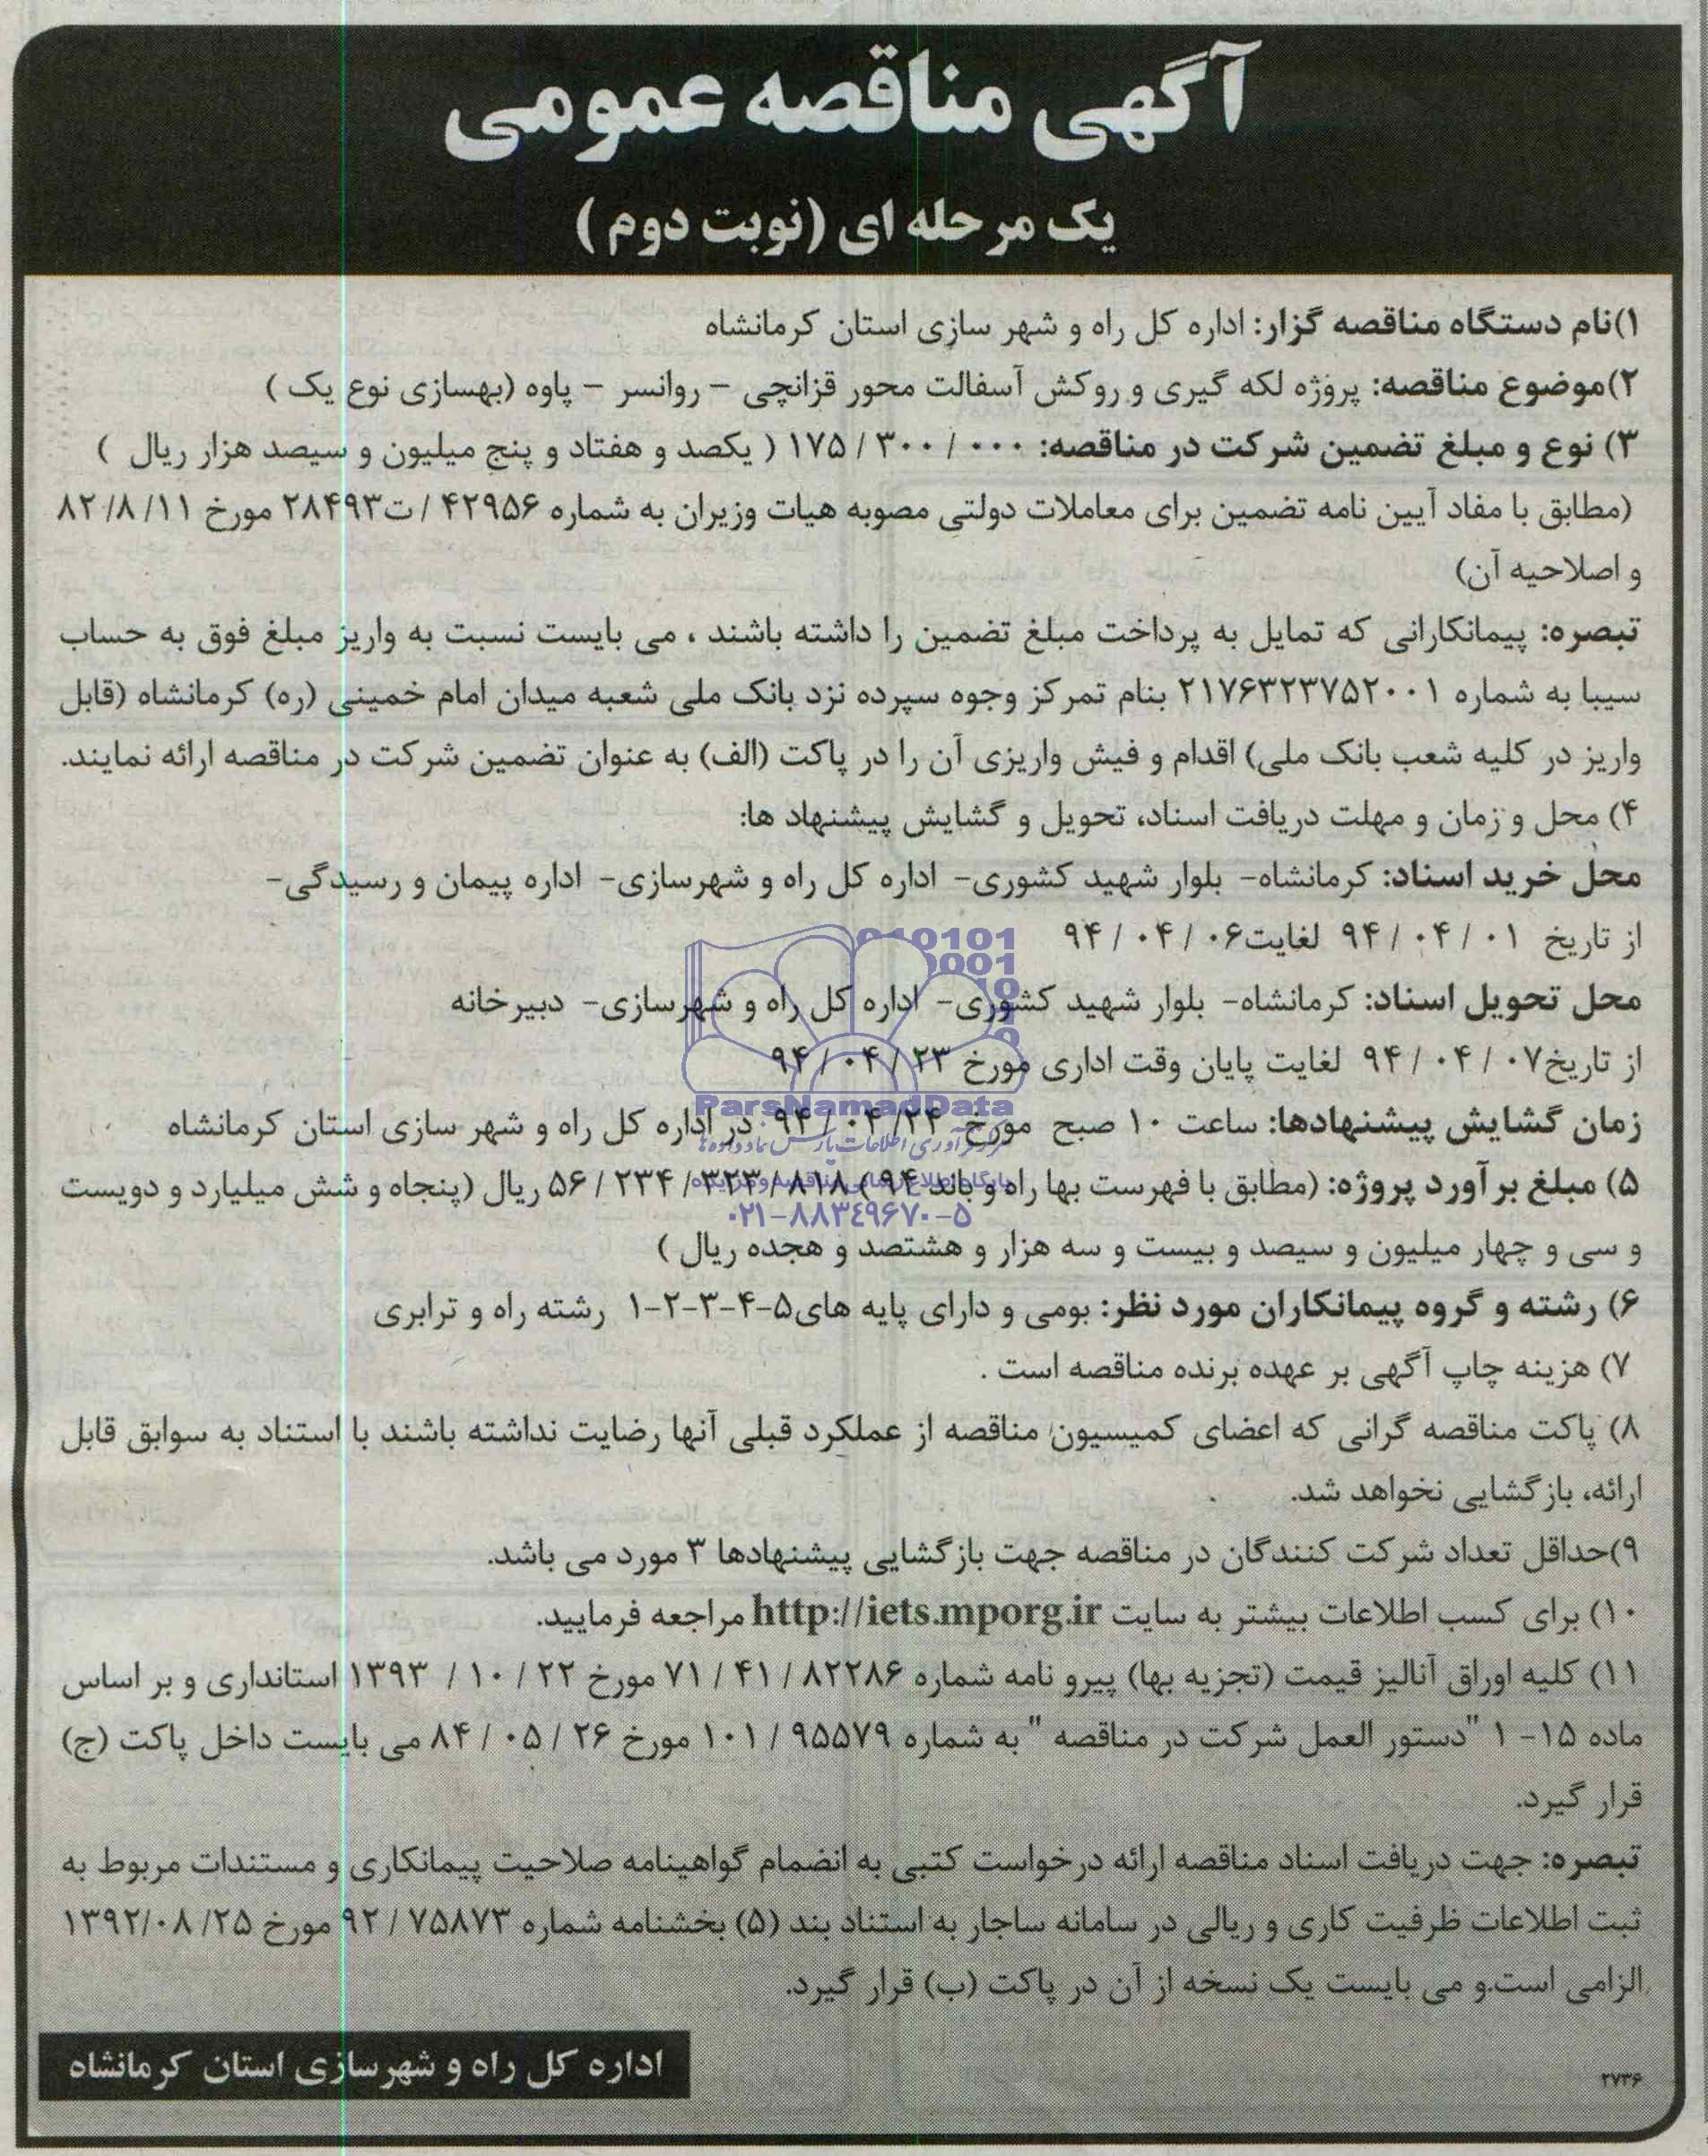 آگهی مناقصه عمومی
یک مرحله ای (نوبت دوم )
۱)نام دستگاه مناقصه گزار: اداره کل راه و شهر سازی استان کرمانشاه
۲)موضوع مناقصه: پروژه لکه گیری و روکش آسفالت محور قزانچی – روانسر – پاوه (بهسازی نوع یک )
۳) نوع و مبلغ تضمین شرکت در مناقصه: ۱۷۵/۳۰۰/۰۰۰ ( یکصد و هفتاد و پنج میلیون و سیصد هزار ریال )
(مطابق با مفاد آیین نامه تضمین برای معاملات دولتی مصوبه هیات وزیران به شماره ۴۲۹۵۶/ت۲۸۴۹۳ مورخ ۸۲/۸/۱۱
و اصلاحیه آن)
تبصره: پیمانکارانی که تمایل به پرداخت مبلغ تضمین را داشته باشند ، می بایست نسبت به واریز مبلغ فوق به حساب
سیبا به شماره ۲۱۷۶۳۲۳۷۵۲۰۰۱ بنام تمرکز وجوه سپرده نزد بانک ملی شعبه میدان امام خمینی (ره) کرمانشاه (قابل
واریز در کلیه شعب بانک ملی) اقدام و فیش واریزی آن را در پاکت (الف) به عنوان تضمین شرکت در مناقصه ارائه نمایند.
۴) محل و زمان و مهلت دریافت اسناد، تحویل و گشایش پیشنهاد ها:
محل خرید اسناد: کرمانشاه- بلوار شهید کشوری- اداره کل راه و شهرسازی- اداره پیمان و رسیدگی-
از تاریخ ۹۴/۰۴/۰۱ لغایت۹۴/۰۴/۰۶
محل تحویل اسناد: کرمانشاه- بلوار شهید کشوری- اداره کل راه و شهرسازی- دبیرخانه
از تاریخ۹۴/۰۴/۰۷ لغایت پایان وقت اداری مورخ ۹۴/۰۴/۲۳
زمان گشایش پیشنهادها: ساعت ۱۰ صبح مورخ ۹۴/۰۴/۲۴ در اداره کل راه و شهر سازی استان کرمانشاه
۵) مبلغ برآورد پروژه: (مطابق با فهرست بها راه و باند ۹۴) ۵۶/۲۳۴/۳۲۳/۸۱۸ ریال (پنجاه و شش میلیارد و دویست
و سی و چهار میلیون و سیصد و بیست و سه هزار و هشتصد و هجده ریال )
۶) رشته و گروه پیمانکاران مورد نظر: بومی و دارای پایه های۵-۴-۳-۲-۱ رشته راه و ترابری
۷) هزینه چاپ آگهی بر عهده برنده مناقصه است .
۸) پاکت مناقصه گرانی که اعضای کمیسیون مناقصه از عملکرد قبلی آنها رضایت نداشته باشند با استناد به سوابق قابل
ارائه، بازگشایی نخواهد شد.
۹)حداقل تعداد شرکت کنندگان در مناقصه جهت بازگشایی پیشنهادها ۳ مورد می باشد.
۱۰) برای کسب اطلاعات بیشتر به سایت http://iets.mporg.ir مراجعه فرمایید.
۱۱) کلیه اوراق آنالیز قیمت (تجزیه بها) پیرو نامه شماره ۷۱/۴۱/۸۲۲۸۶ مورخ ۱۳۹۳/۱۰/۲۲ استانداری و بر اساس
ماده ۱۵- ۱ "دستور العمل شرکت در مناقصه " به شماره ۱۰۱/۹۵۵۷۹ مورخ ۸۴/۰۵/۲۶ می بایست داخل پاکت (ج)
قرار گیرد.
تبصره: جهت دریافت اسناد مناقصه ارائه درخواست کتبی به انضمام گواهینامه صلاحیت پیمانکاری و مستندات مربوط به
ثبت اطلاعات ظرفیت کاری و ریالی در سامانه ساجار به استناد بند (۵) بخشنامه شماره ۹۲/۷۵۸۷۳ مورخ ۱۳۹۲/۰۸/۲۵
الزامی است.و می بایست یک نسخه از آن در پاکت (ب) قرار گیرد.
اداره کل راه و شهرسازی استان کرمانشاه
۲۷۳۶
ParsNamadData
۰۲۱-۸۸۳۴۹۶۷۰-۵